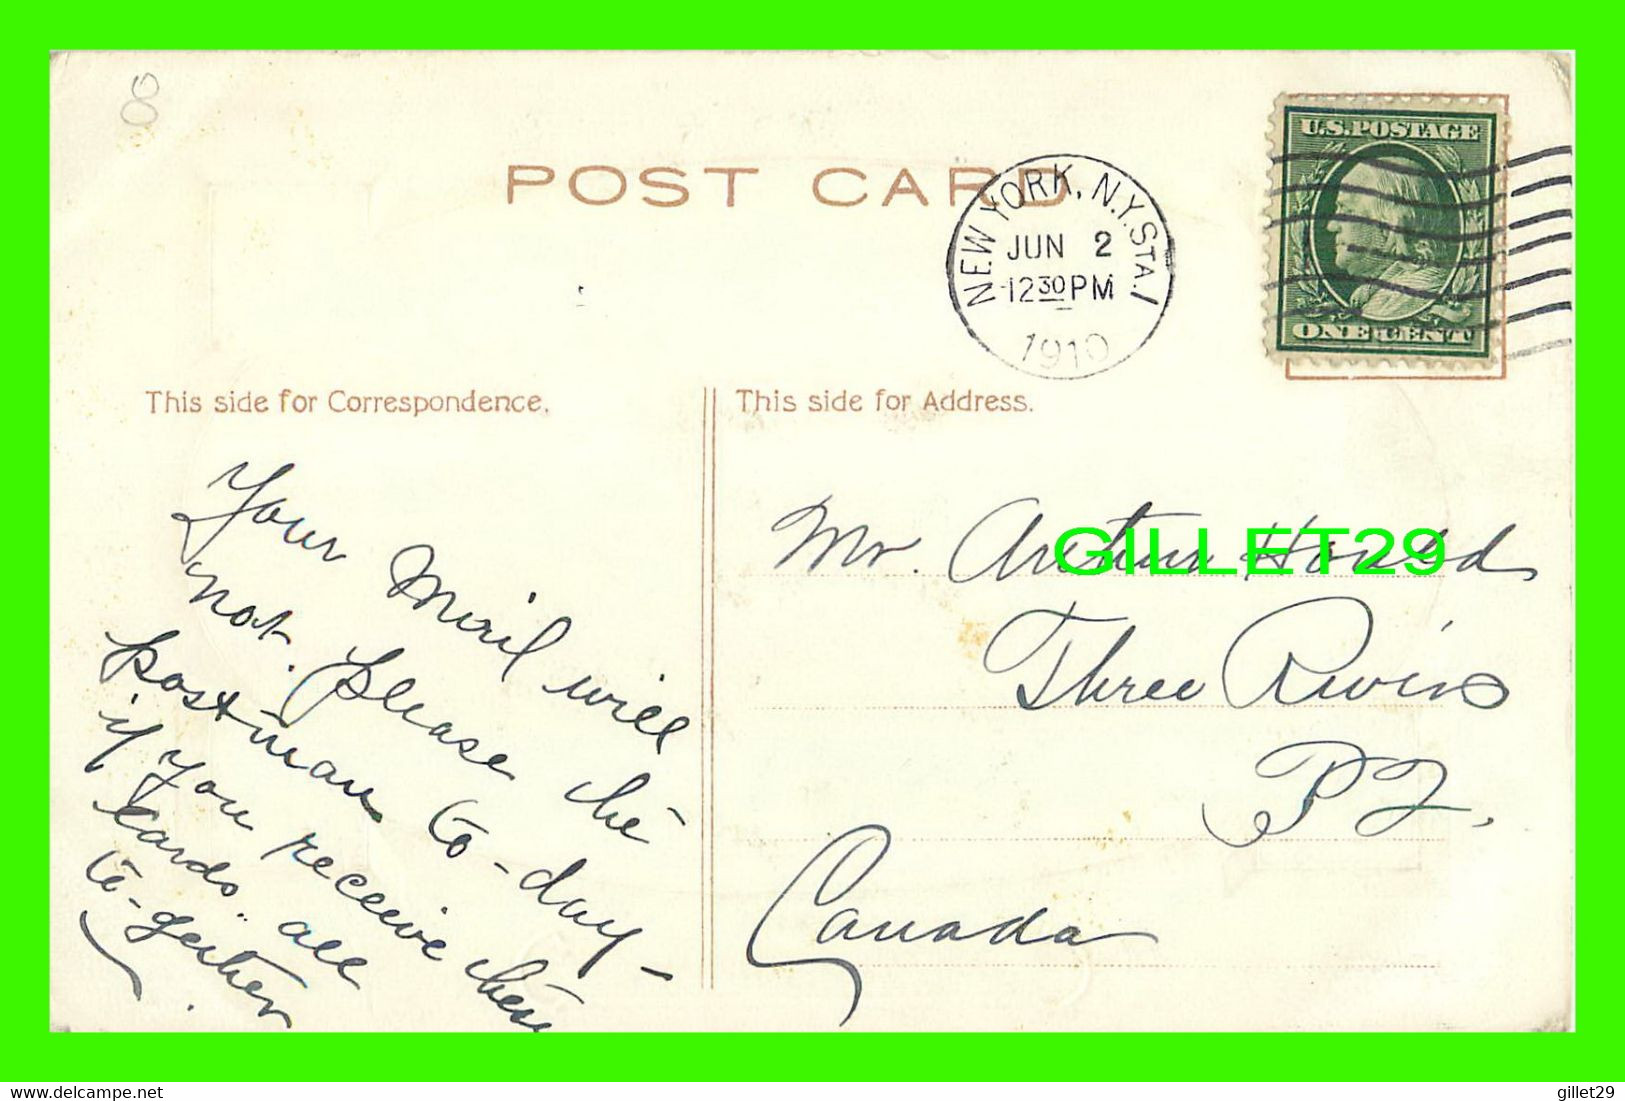 POST CARD
NEW YORK, N.Y. STA. 1
JUN 2
12 30 PM
1910
U.S. POSTAGE
ONE CENT
This side for Correspondence.
This side for Address.
Your will
not. please the
postman to-day -
if you receive these
cards. all
to-geither
Mr. Arthur
Three Rivers
P 2.
Canada
GILLET29
delcampe.net
gillet29